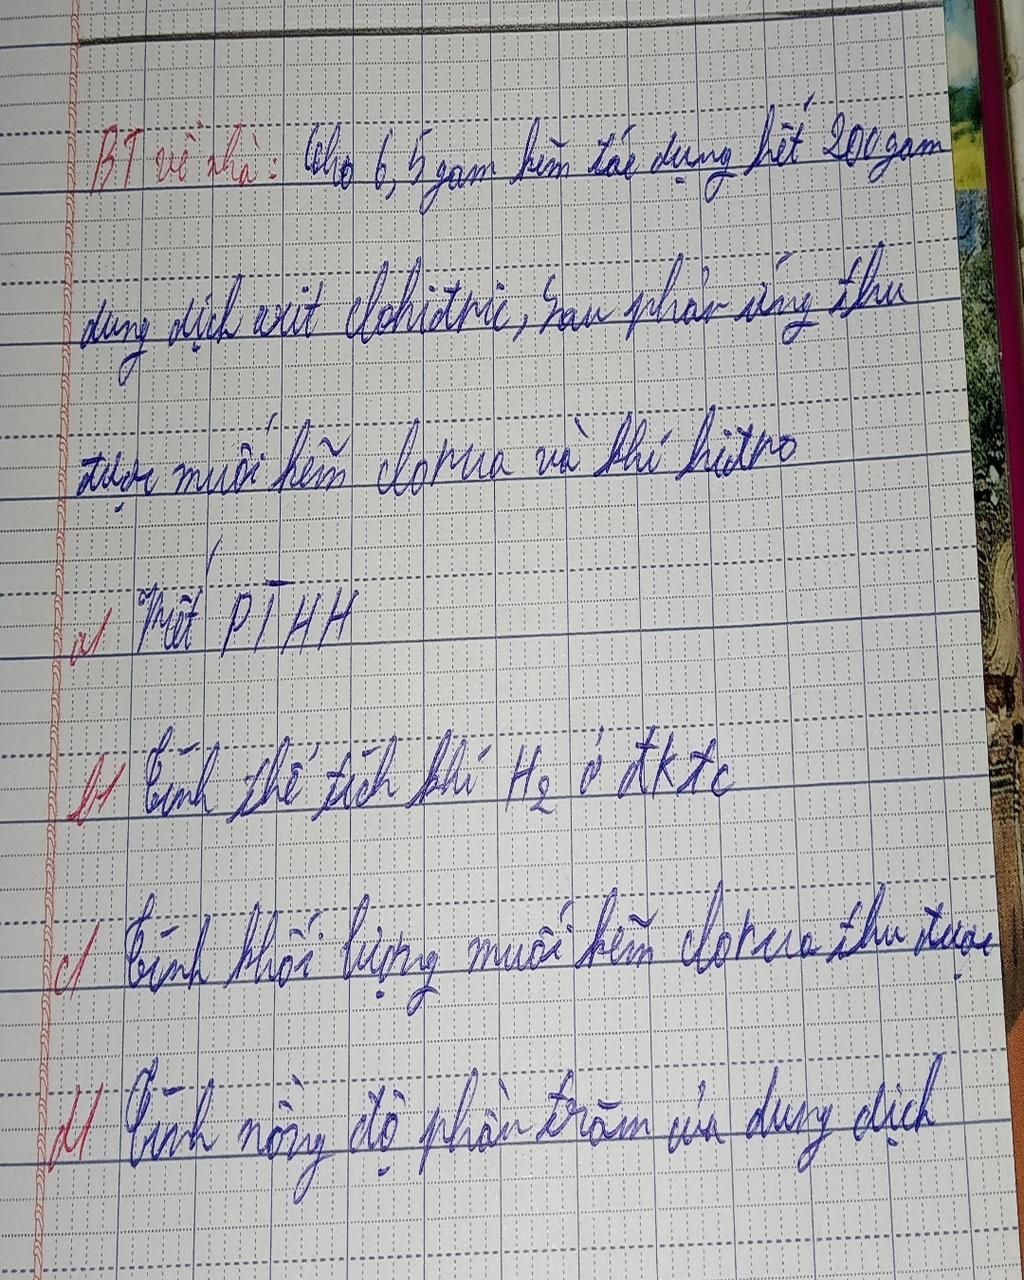 BT về nhà: Cho 6,5 gam kẽm tác dụng hết 200 gam
dung dịch axit clohiđric, sau phản ứng thu
được muối kẽm clorua và khí hiđro
a/ Viết PTHH
b/ Tính thể tích khí H2 ở đktc
c/ Tính khối lượng muối kẽm clorua thu được
d/ Tính nồng độ phần trăm của dung dịch